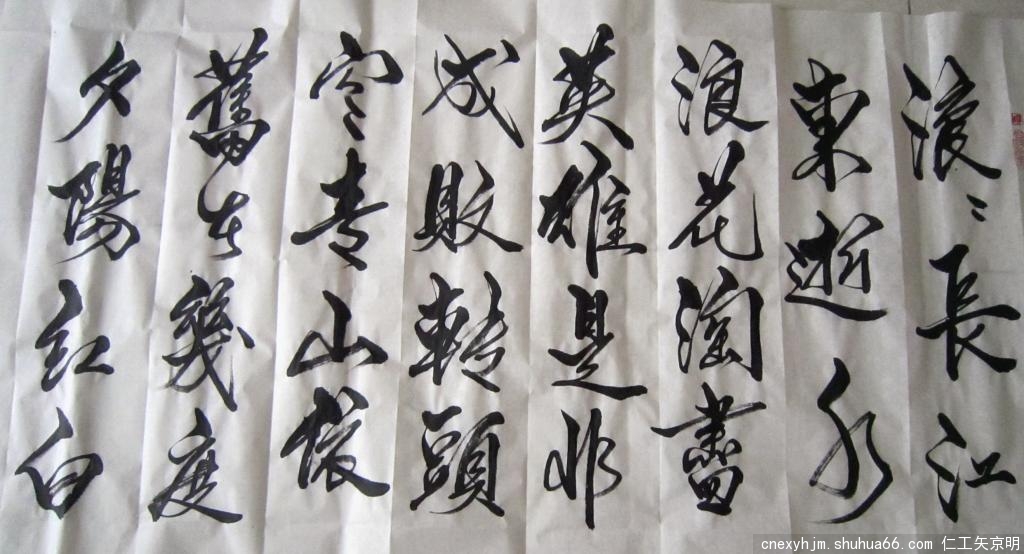 滚〻長江
東逝水
浪花淘盡
英雄是非
成敗轉頭
空青山依
舊在幾度
夕陽紅白
cnexyhjm.shuhua66.com 仁工矢京明